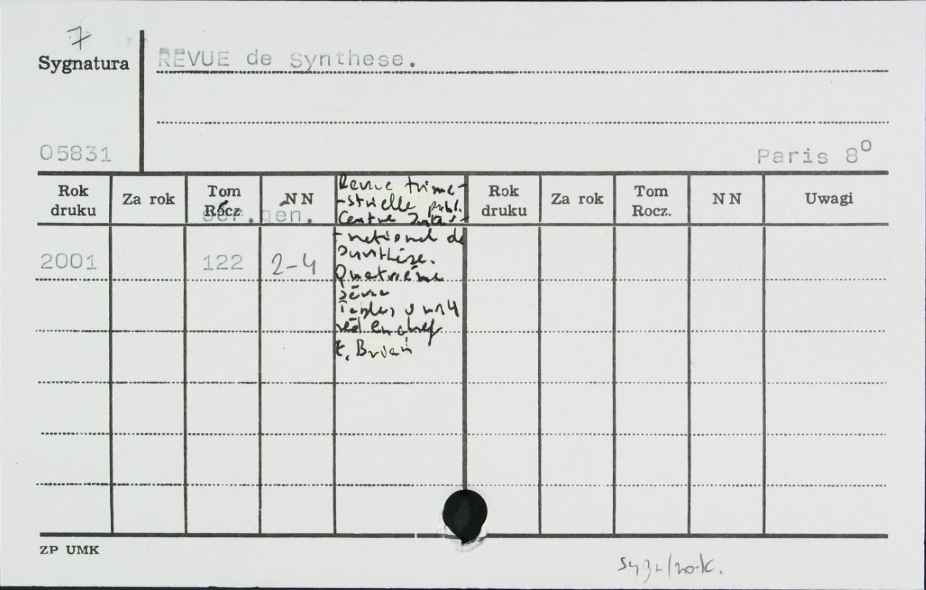 7
Sygnatura
REVUE de Synthese.
05831
Paris 8º
Rok druku
Za rok
Tom Rocz.
NN
Rok druku
Za rok
Tom Rocz.
NN
Uwagi
ser.gen.
Revue trime-
-strielle publ.
Centre Inter-
-national de
Synthèse.
Quatrième
Série
réd en chef
E. Brian
2001
122
2-4
ZP UMK